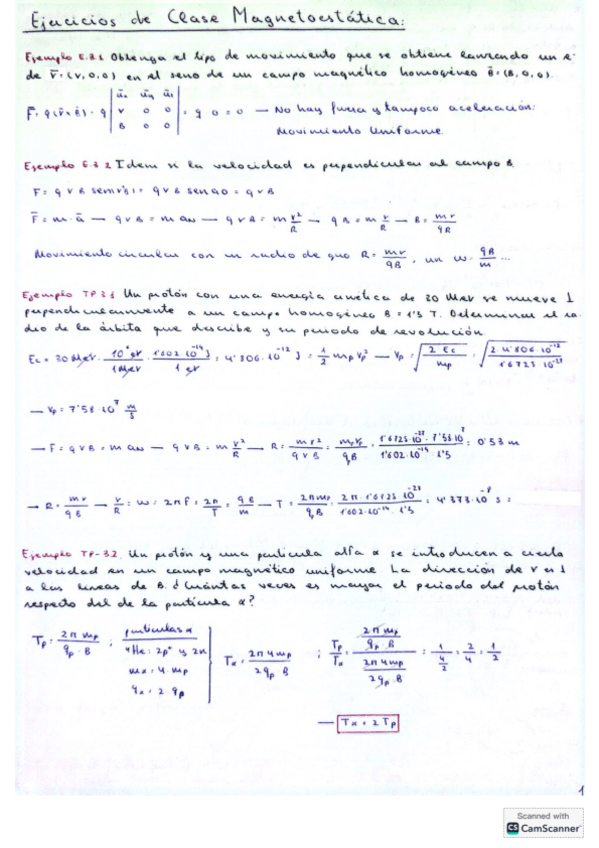 Ejercicios de Clase Magnetoestática:
Ejemplo E.3.1 Obtenga el tipo de movimiento que se obtiene lanzando un e⁻
de v̄=(v,0,0) en el seno de un campo magnético homogéneo B̄=(B,0,0).
F̄=q(v̄×B̄)=q |ūx ūy ūz; v 0 0; B 0 0| = q·0=0 — No hay fuerza y tampoco aceleración:
Movimiento Uniforme.
Ejemplo E.3.2 Idem si la velocidad es perpendicular al campo B.
F= q v B sen(v,B)= q v B sen90 = q v B
F̄=m·ā → q v B = m aN → q v B = m v²/R → q B = m v/R → B= mv/qR
Movimiento circular con un radio de giro R= mv/qB, un ω= qB/m ...
Ejemplo TP 3.1 Un protón con una energía cinética de 30 MeV se mueve ⊥
perpendicularmente a un campo homogéneo B = 1'5 T. Determinar el ra-
dio de la órbita que describe y su periodo de revolución.
Ec= 30 MeV · 10⁶ eV/1MeV · 1'602·10⁻¹⁹ J/1 eV = 4'806·10⁻¹² J = 1/2 mp vp² → vp= √(2 Ec/mp) = √(2·4'806·10⁻¹²/1'6725·10⁻²⁷)
→ vp= 7'58·10⁷ m/s
→ F= q v B = m aN → q v B = m v²/R → R= m v²/q v B = mp vp/qp B = 1'6725·10⁻²⁷·7'58·10⁷/1'602·10⁻¹⁹·1'5 = 0'53 m
→ R= mv/qB → v/R = ω= 2πf= 2π/T = qB/m → T= 2π mp/qp B = 2π·1'6725·10⁻²⁷/1'602·10⁻¹⁹·1'5 = 4'373·10⁻⁸ s
Ejemplo TP-3.2. Un protón y una partícula alfa α se introducen a cierta
velocidad en un campo magnético uniforme. La dirección de v es ⊥
a las líneas de B. ¿Cuántas veces es mayor el periodo del protón
respecto del de la partícula α?
Tp= 2π mp/qp·B ; partículas α
⁴He: 2p⁺ y 2n
mα= 4 mp
qα= 2 qp
Tα= 2π 4mp/2qp B ; Tp/Tα = (2π mp/qp·B)/(2π 4mp/2qp B) = 1/(4/2) = 2/4 = 1/2
→ Tα = 2Tp
1
Scanned with
CS CamScanner